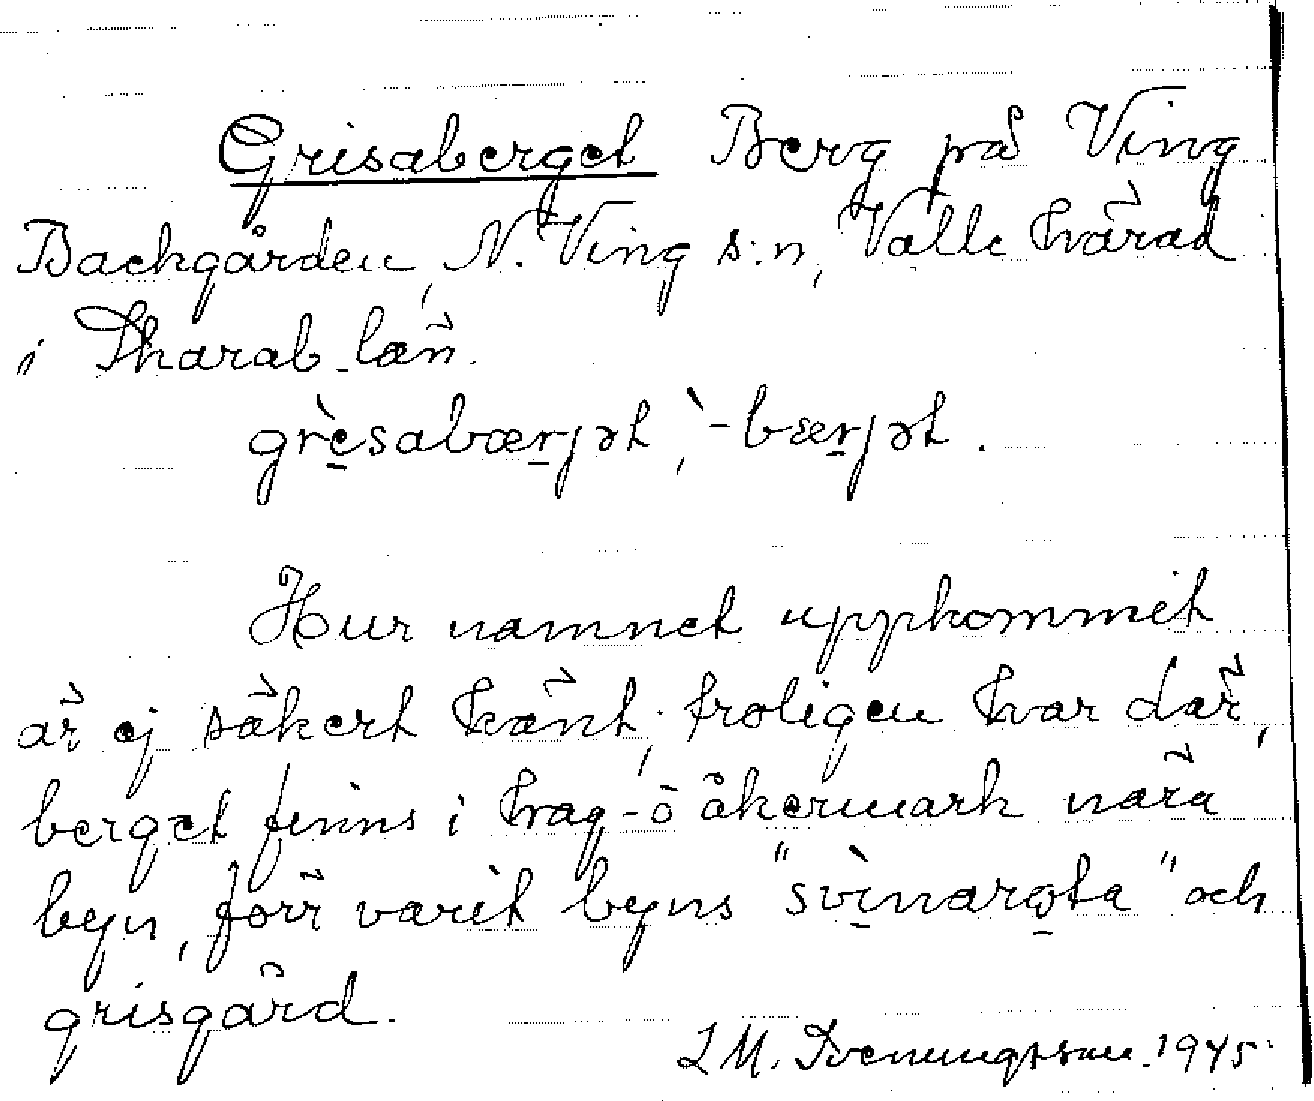 Grisaberget Berg på Ving
Backgården, N. Ving s:n, Valle härad
i Skarab. län.
grèsabærjət, `-bærjət.
Hur namnet uppkommit
är ej säkert känt; troligen har där,
berget finns i hag- o åkermark nära
byn, förr varit byns "svìnarota" och
grisgård.
L M. Svenungsson. 1945.